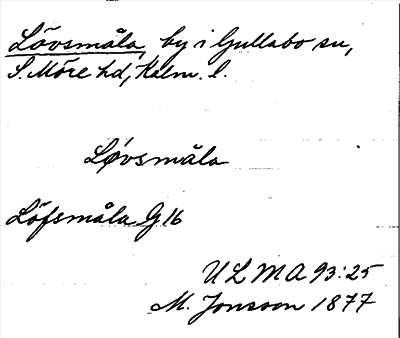 Lövsmåla, by i Gullabo sn,
S. Möre hd, Kalm. l.
Lǿvsmåla
Löfsmåla G 16
ULMA 93:25
M. Jonsson 1877